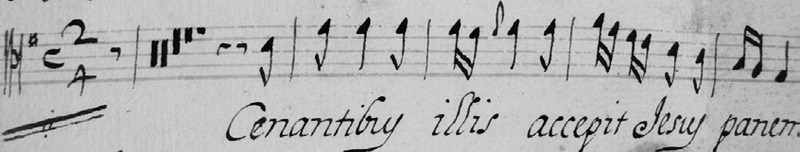 C 2/4
Cenantibus illis accepit Jesus panem